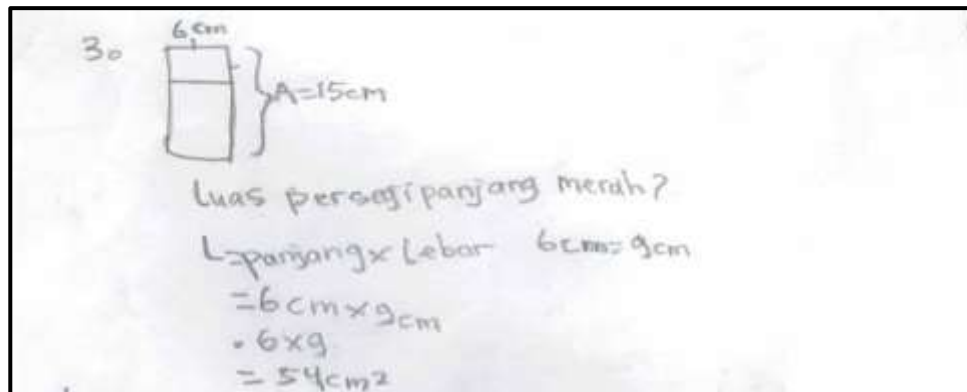 6 cm
3.
A=15cm
Luas persegi panjang merah?
L=panjang x Lebar 6cm= 9cm
=6cm x 9cm
• 6x9
= 54cm2